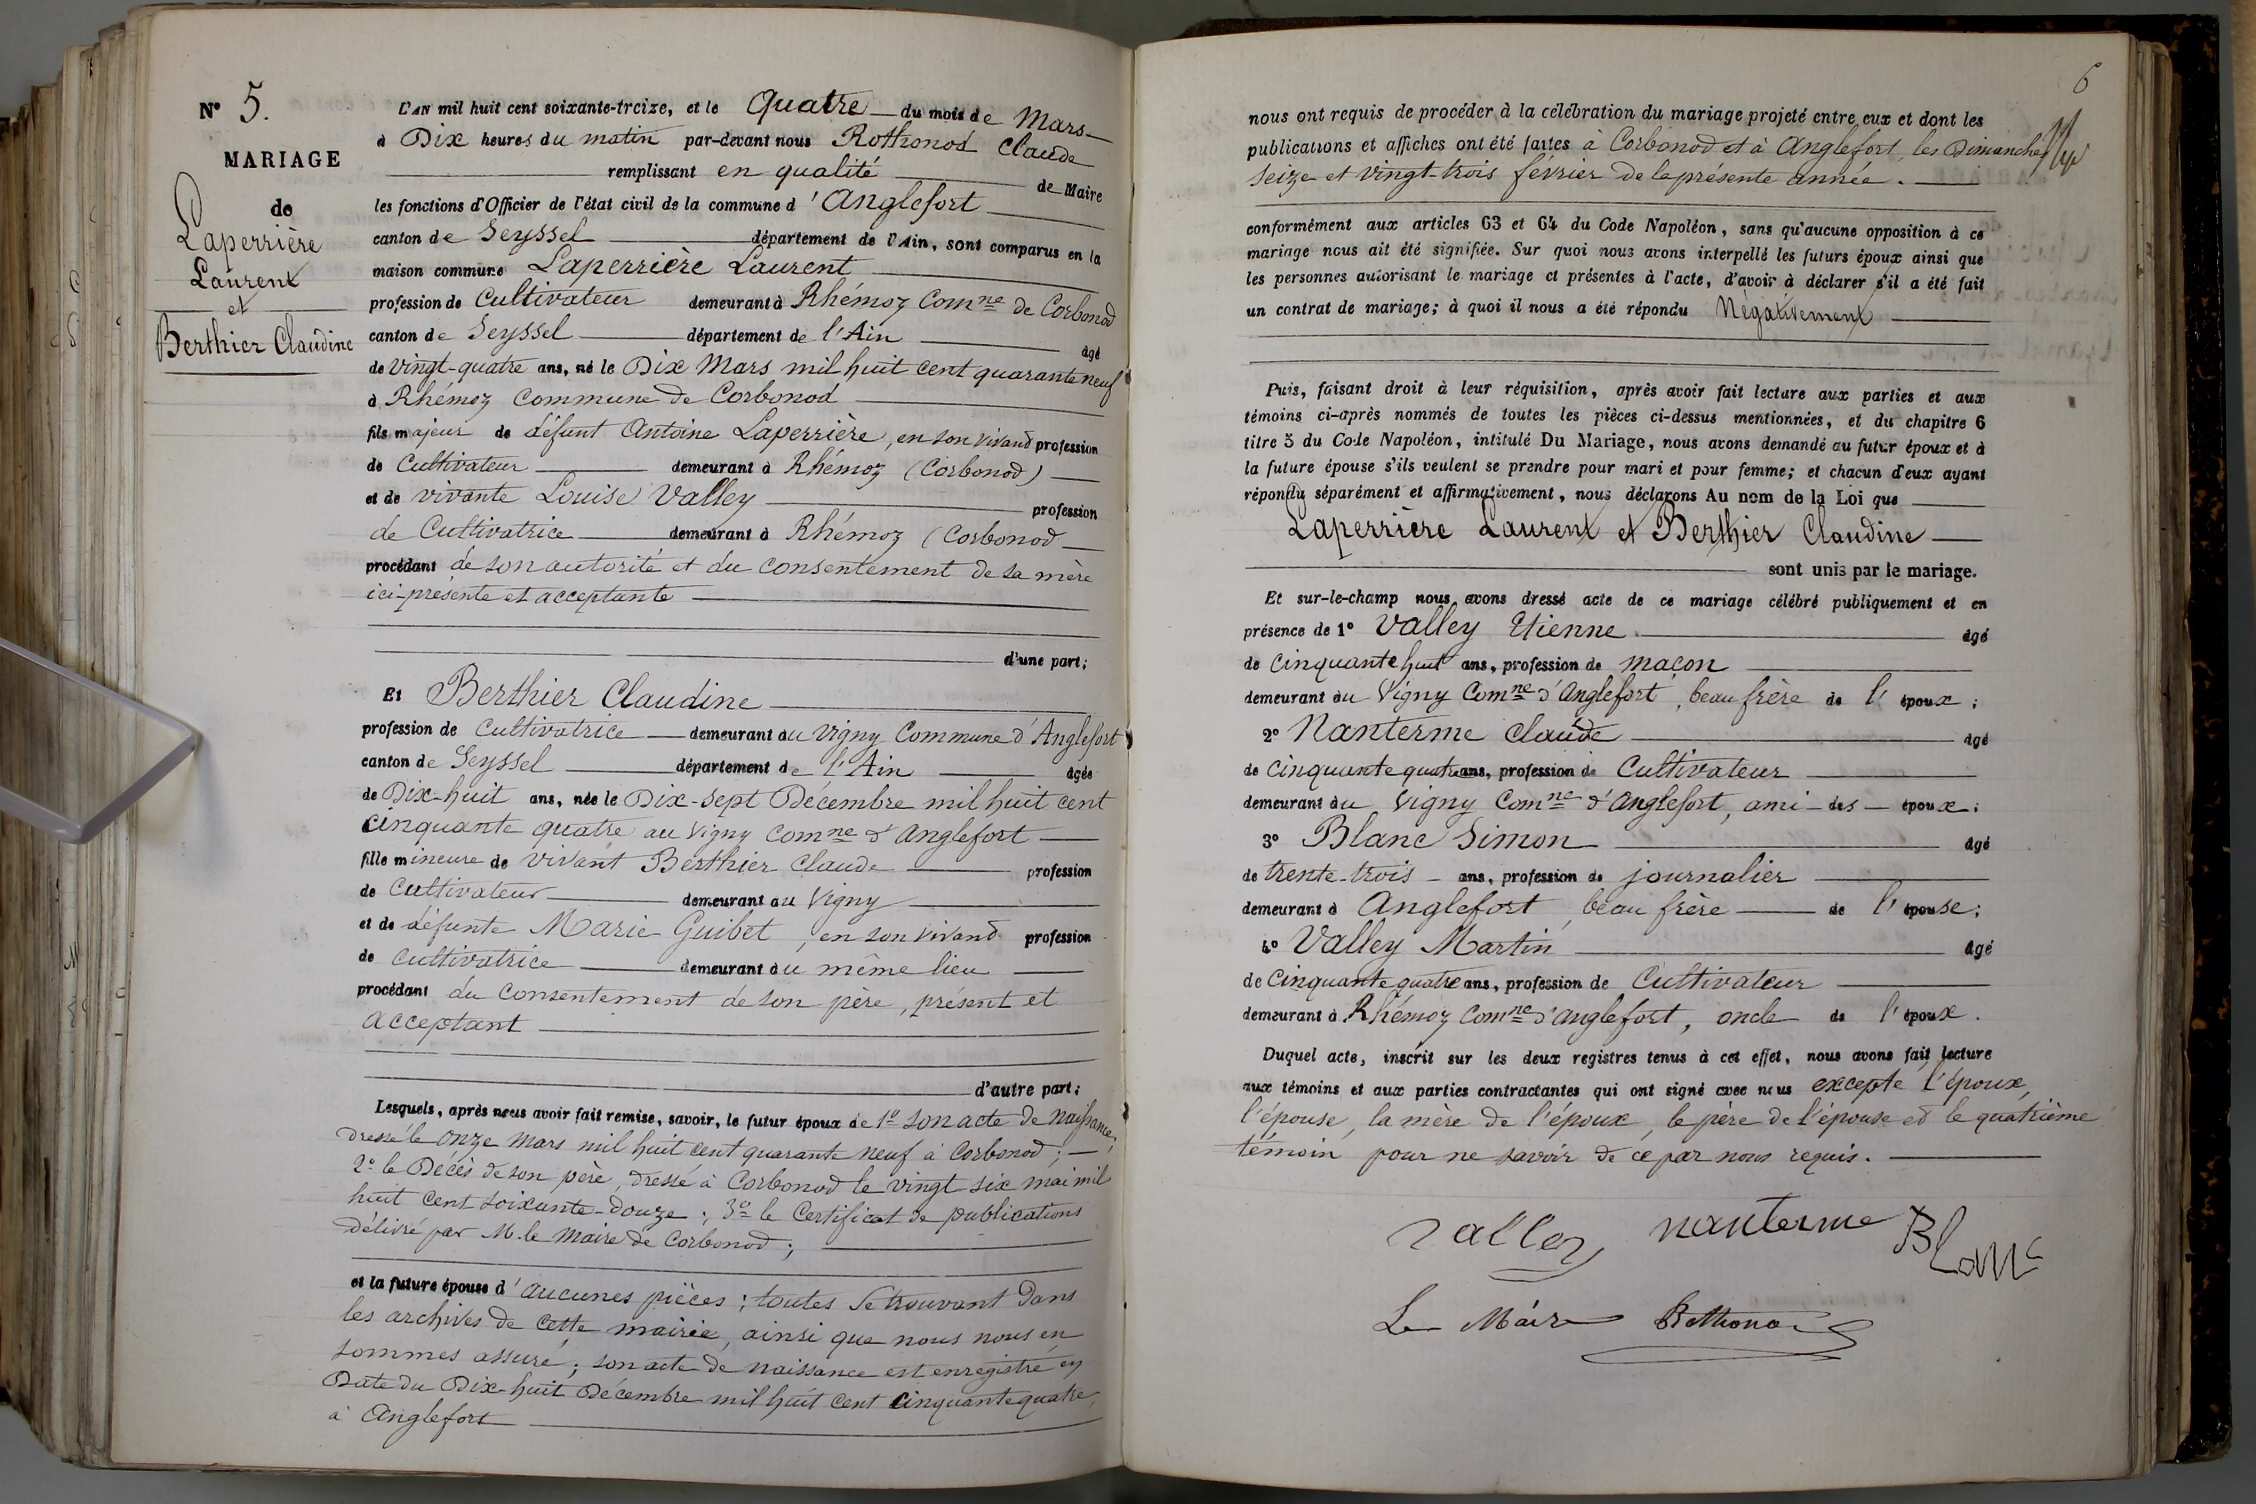 N° 5.
MARIAGE
de
Laperrière
Laurent
et
Berthier Claudine
L'AN mil huit cent soixante-treize, et le Quatre du mois de Mars
à Dix heures du matin par-devant nous Rothonod Claude
remplissant en qualité de Maire
les fonctions d'Officier de l'état civil de la commune d'Anglefort
canton de Seyssel département de l'Ain, sont comparus en la
maison commune Laperrière Laurent
profession de Cultivateur demeurant à Rhémoz Comne de Corbonod
canton de Seyssel département de l'Ain âgé
de vingt-quatre ans, né le Dix Mars mil huit cent quarante neuf
à Rhémoz Commune de Corbonod
fils majeur de défunt Antoine Laperrière, en son vivand profession
de Cultivateur demeurant à Rhémoz (Corbonod)
et de vivante Louise Valley profession
de Cultivatrice demeurant à Rhémoz (Corbonod
procédant de son autorité et du consentement de sa mère
ici-présente et acceptante
d'une part;
Et Berthier Claudine
profession de Cultivatrice demeurant au Vigny Commune d'Anglefort
canton de Seyssel département de l'Ain âgée
de Dix-huit ans, née le Dix-sept Décembre mil huit cent
cinquante quatre au Vigny Comne d'Anglefort
fille mineure de vivant Berthier Claude profession
de Cultivateur demeurant au Vigny
et de défunte Marie Guibet, en son vivand profession
de Cultivatrice demeurant au même lieu
procédant du consentement de son père, présent et
acceptant
d'autre part;
Lesquels, après nous avoir fait remise, savoir, le futur époux de 1° son acte de naissance,
dressé le onze Mars mil huit cent quarante neuf à Corbonod;
2° le Décès de son père, dressé à Corbonod le vingt six mai mil
huit cent soixante-douze; 3° le Certificat de publications
délivré par M. le Maire de Corbonod;
et la future épouse d'aucunes pièces; toutes se trouvant dans
les archives de cette mairie, ainsi que nous nous en
sommes assuré; son acte de naissance est enregistré en
Date du Dix-huit Décembre mil huit cent cinquante quatre,
à Anglefort
6
nous ont requis de procéder à la célébration du mariage projeté entre eux et dont les
publications et affiches ont été faites à Corbonod et à Anglefort, les Dimanches
seize et vingt-trois février de la présente année.
conformément aux articles 63 et 64 du Code Napoléon, sans qu'aucune opposition à ce
mariage nous ait été signifiée. Sur quoi nous avons interpellé les futurs époux ainsi que
les personnes autorisant le mariage et présentes à l'acte, d'avoir à déclarer s'il a été fait
un contrat de mariage; à quoi il nous a été répondu Négativement
Puis, faisant droit à leur réquisition, après avoir fait lecture aux parties et aux
témoins ci-après nommés de toutes les pièces ci-dessus mentionnées, et du chapitre 6
titre 5 du Code Napoléon, intitulé Du Mariage, nous avons demandé au futur époux et à
la future épouse s'ils veulent se prendre pour mari et pour femme; et chacun d'eux ayant
répondu séparément et affirmativement, nous déclarons Au nom de la Loi que
Laperrière Laurent et Berthier Claudine
sont unis par le mariage.
Et sur-le-champ nous avons dressé acte de ce mariage célébré publiquement et en
présence de 1° Valley Etienne âgé
de cinquante huit ans, profession de maçon
demeurant au Vigny Comne d'Anglefort, beau frère de l'époux;
2° Nanterme Claude âgé
de cinquante quatre ans, profession de Cultivateur
demeurant au Vigny Comne d'Anglefort, ami des époux;
3° Blanc Simon âgé
de trente-trois ans, profession de journalier
demeurant à Anglefort, beau frère de l'épouse;
4° Valley Martin âgé
de cinquante quatre ans, profession de Cultivateur
demeurant à Rhémoz Comne d'Anglefort, oncle de l'époux.
Duquel acte, inscrit sur les deux registres tenus à cet effet, nous avons fait lecture
aux témoins et aux parties contractantes qui ont signé avec nous excepte l'époux,
l'épouse, la mère de l'époux, le père de l'épouse et le quatrième
témoin pour ne savoir de ce par nous requis.
Valley nanterme Blanc
Le Maire Rothonod